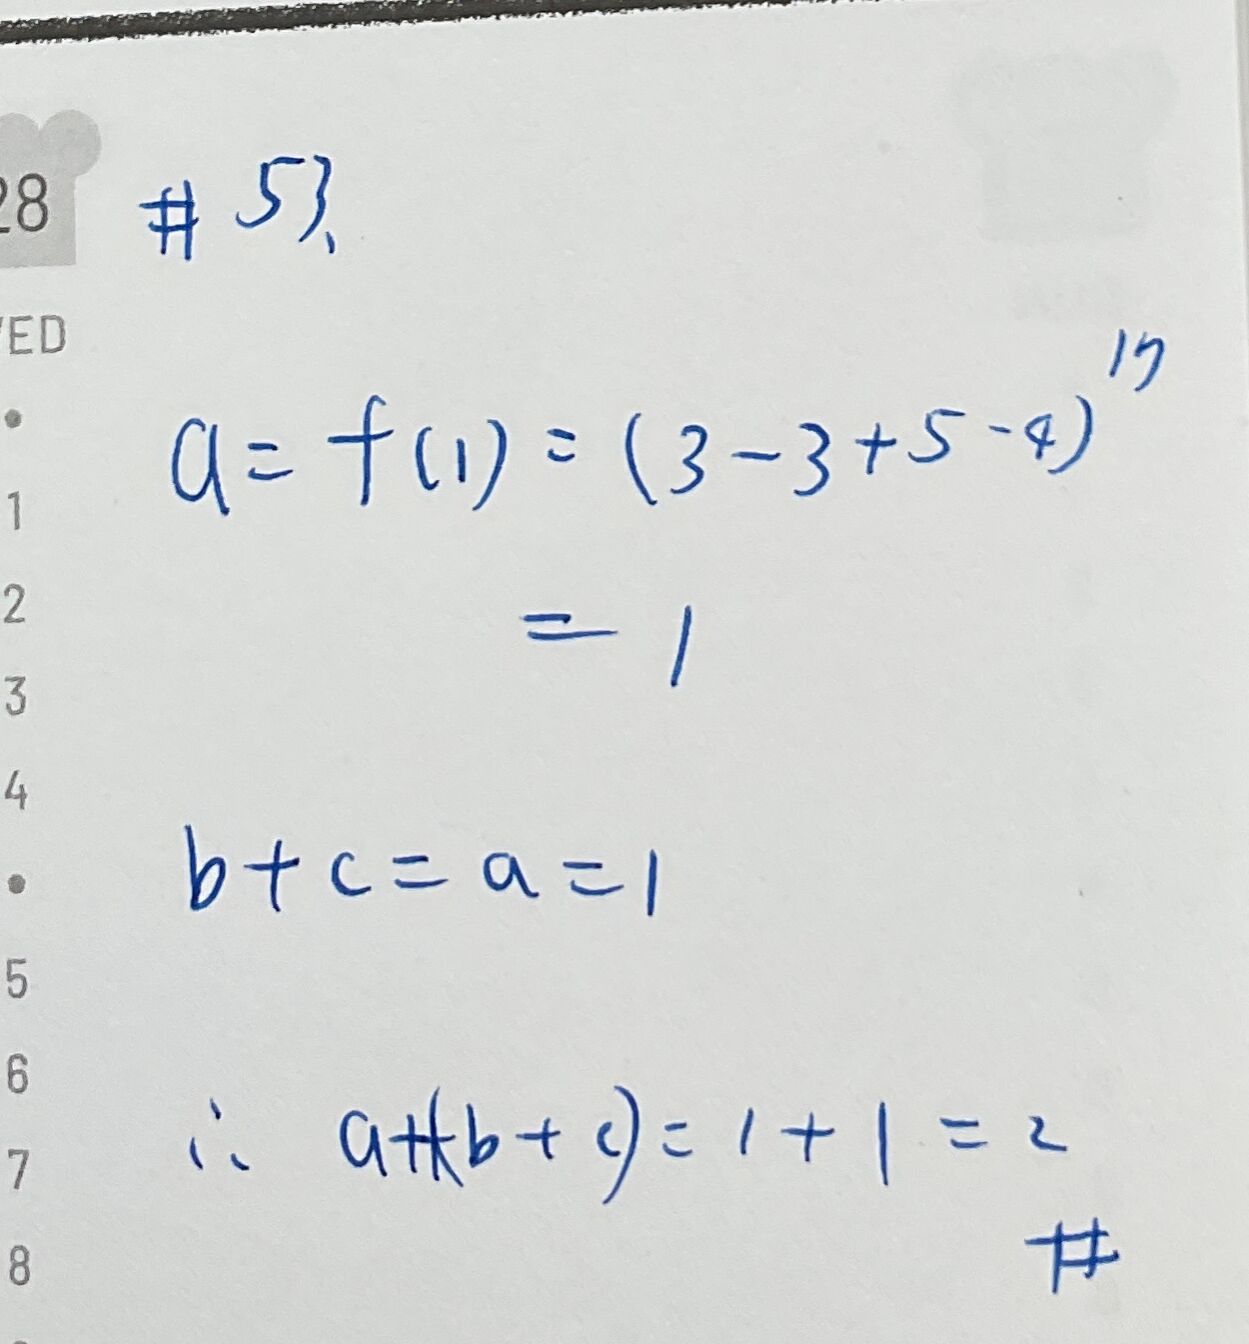 28
# 53.
ED
a = f(1) = (3 - 3 + 5 - 4)^17
1
2
= 1
3
4
b + c = a = 1
5
6
∴ a + (b + c) = 1 + 1 = 2
7
#
8